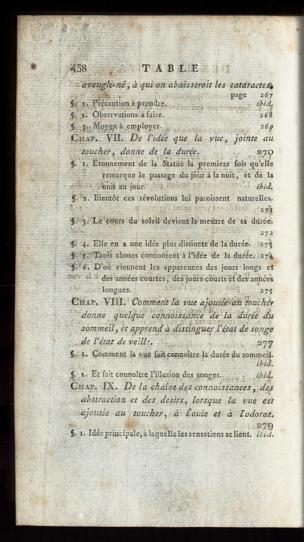 438 TABLE
aveugle-né, à qui on abaisseroit les cataractes.
page 267
§. 1. Précaution à prendre. ibid.
§. 2. Observations à faire. 268
§. 3. Moyen à employer. 269
CHAP. VII. De l'idée que la vue, jointe au
toucher, donne de la durée. 270
§. 1. Etonnement de la Statue la premiere fois qu'elle
remarque le passage du jour à la nuit, et de la
nuit au jour. ibid.
§. 2. Bientôt ces révolutions lui paroissent naturelles.
271
§. 3. Le cours du soleil devient la mesure de sa durée.
272
§. 4. Elle en a une idée plus distincte de la durée. 273
§. 5. Trois choses concourent à l'idée de la durée. 274
§. 6. D'où viennent les apparences des jours longs et
des années courtes, des jours courts et des années
longues. 275
CHAP. VIII. Comment la vue ajoutée au toucher
donne quelque connoissance de la durée du
sommeil, et apprend à distinguer l'état de songe
de l'état de veille. 277
§. 1. Comment la vue fait connoître la durée du sommeil.
ibid.
§. 2. Et fait connoître l'illusion des songes. ibid.
CHAP. IX. De la chaîne des connoissances, des
abstraction et des desirs, lorsque la vue est
ajoutée au toucher, à l'ouie et à l'odorat.
279
§. 1. Idée principale, à laquelle les sensations se lient. ibid.